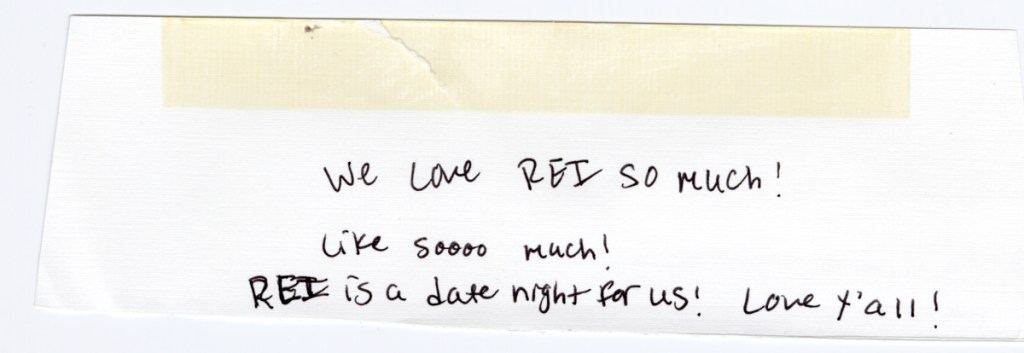 We Love REI so much!
Like soooo much!
REI is a date night for us! Love Y'all!